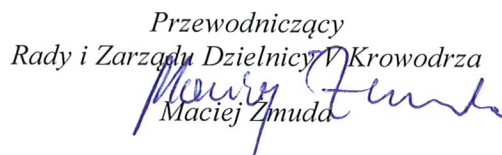 Przewodniczący
Rady i Zarządu Dzielnicy V Krowodrza
Maciej Żmuda